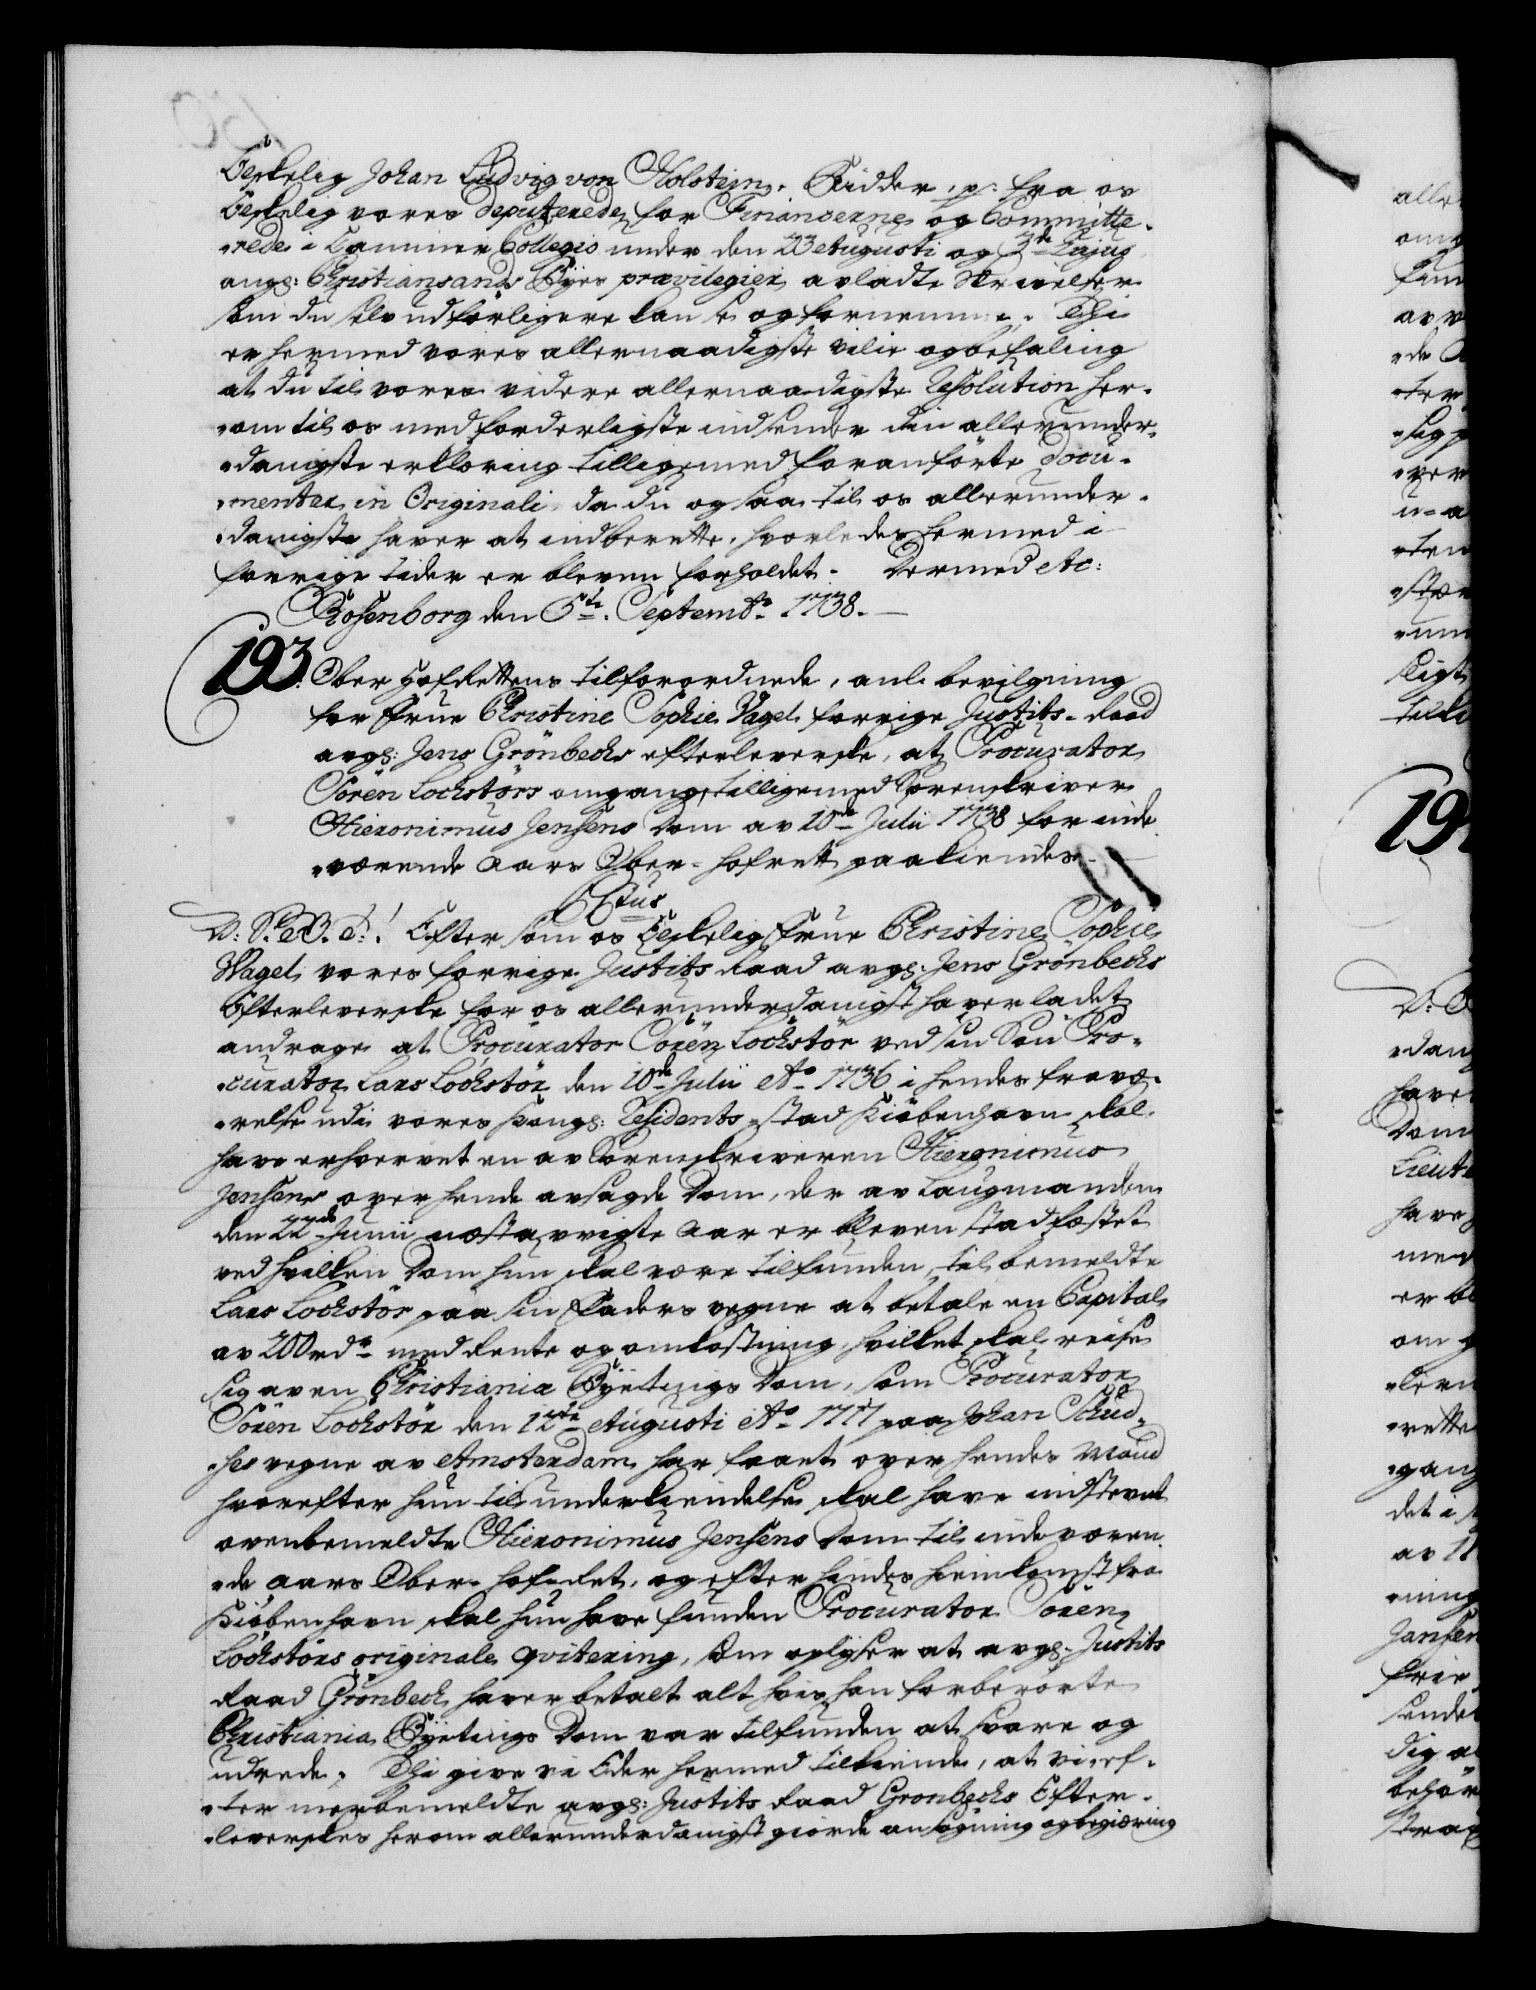 Geskelig Johan Ludvig von Holstein. Ridder. p: fra os
Geskelig vores deputerede for Financerne og Committe-
-rede i Cammer Collegio under den 23 Augusti og 3de hujus
ang: Christiansands Byes previlegier avladte Skrivelser
som du selv udförligere kan se og fornemme. Thi
er hermed vores allernaadigste vilie og befaling
at du til vores videre allernaadigste Resolution her-
-om til os med forderligste indsender din allerunder-
-danigste erkloring tilligemed foranförte docu-
-menter in Originali, da du og saa til os allerunder-
-danigste haver at indberette, hvorledes hermed i
forrige tider er bleven forholdet. Dermed etc:
Rosenborg den 5te Septembr. 1738.
193. Ober Hof Rettens tilforordnede, anl. bevilgning
for Frue Christine Sophie Vagel forrige Justits-Raad
avg: Jens Grönbechs efterleverske, at Procurator
Sören Lochstörs omgang tilligemed Sorenskriver
Hieronimus Jensens Dom av 10de Julii 1738 for inde
-værende Aars Ober-hofrett paakiendes.
Ctus
D: S: B. T.! Eftersom os Geskelig Frue Christine Sophie
Wagel vores forrige Justits Raad avg: Jens Grönbechs
Efterleverske for os allerunderdanigst haver ladet
andrage at Procurator Sören Lochstör ved sin Sön Pro-
-curator Lars Lochstör den 10de Julii Ao 1736 i hendes fravæ-
-relse udi vores Kongl: Residents-stad Kiöbenhavn skal
have erhvervet en av Sorenskriveren Hieronimus
Jensens over hende avsagde Dom, der av Laugmanden
den 22de Junii næstavvigte Aar er bleven stadfæstet
ved hvilken Dom hun skal være tilfunden, til bemeldte
Lars Lochstör paa sin Faders vegne at betale en Capital
av 200 rdr med Rente og omkostning, hvilket skal reise
sig av en Christiania Byetings Dom, som Procurator
Sören Lochstör den 12te Augusti Ao 1717 paa Johan Schud-
-hes vegne av Amsterdam har faaet over hendes Mand
hvorefter hun til underkiendelse skal have indstevnt
ovenbemeldte Hieronimus Jensens Dom til indeværen-
-de Aars Ober-hof-ret, og efter hendes hiemkomst fra
Kiöbenhavn skal hun have funden Procurator Sören
Lochstörs originale qvitering, som oplyser at avg: Justits
Raad Grönbech haver betalt alt hvis han forberörte
Christiania Byetings Dom var tilfunden at svare og
udrede. Thi give vi Eder hermed tilkiende, at vi ef-
-ter merbemeldte avg: Justits Raad Grönbechs Efter-
-leverskes herom allerunderdanigst giorde ansögning og begiæring